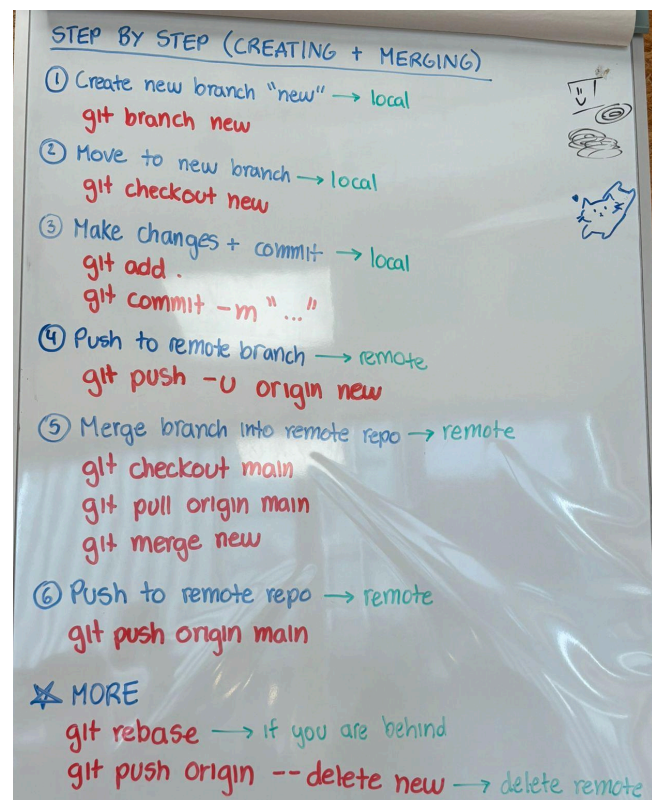 STEP BY STEP (CREATING + MERGING)
① Create new branch "new" → local
git branch new
② Move to new branch → local
git checkout new
③ Make changes + commit → local
git add .
git commit -m "..."
④ Push to remote branch → remote
git push -u origin new
⑤ Merge branch into remote repo → remote
git checkout main
git pull origin main
git merge new
⑥ Push to remote repo → remote
git push origin main
☆ MORE
git rebase → if you are behind
git push origin --delete new → delete remote